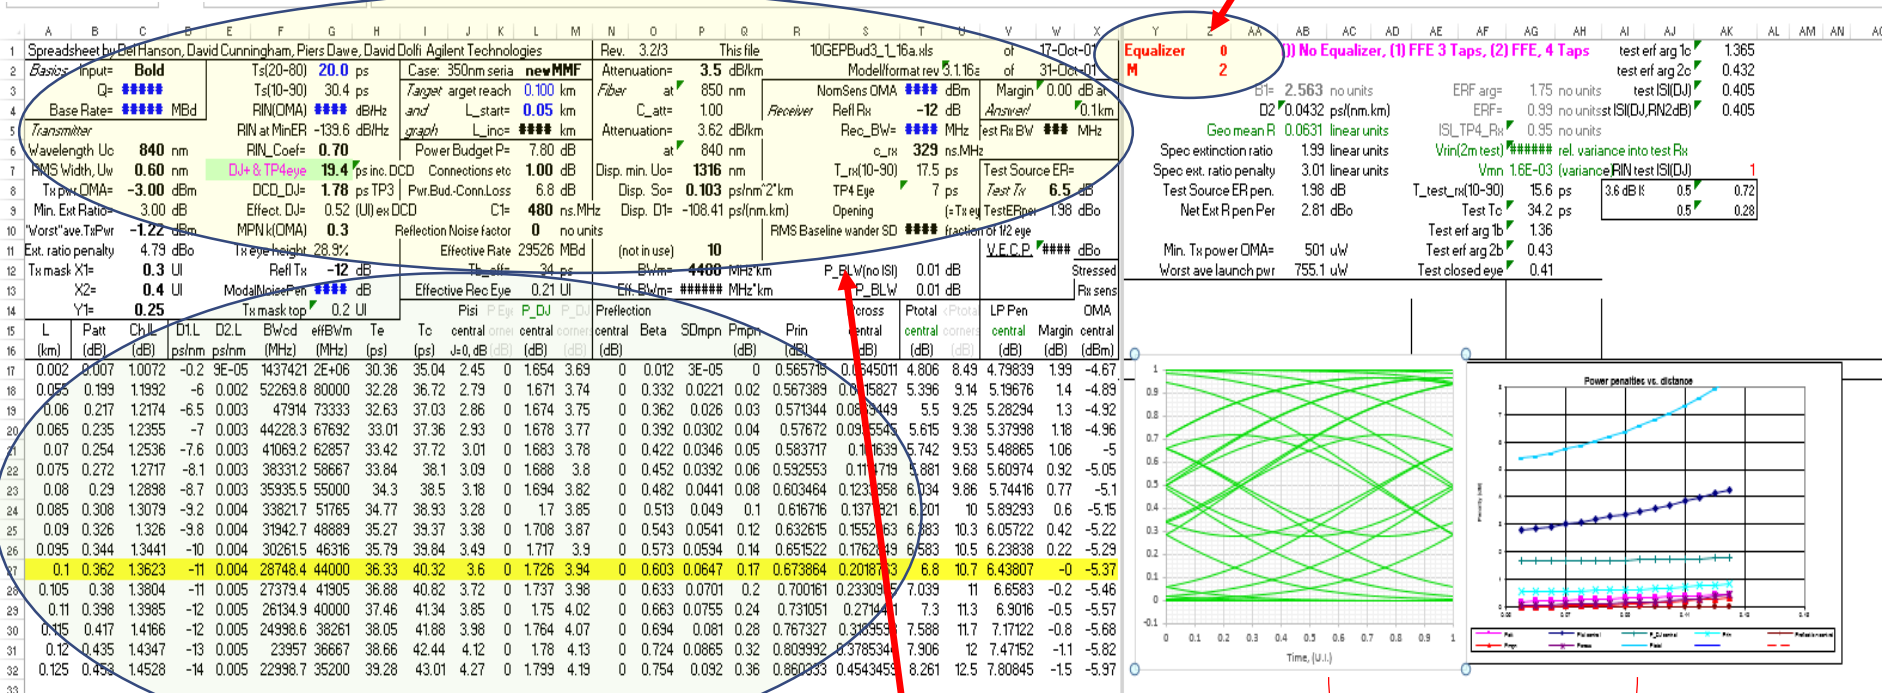 A B C D E F G H I J K L M N O P Q R S T U V W X Y Z AA AB AC AD AE AF AG AH AI AJ AK AL AM AN
1 Spreadsheet by Del Hanson, David Cunningham, Piers Dawe, David Dolfi Agilent Technologies Rev. 3.2/3 This file 10GEPBud3_1_16a.xls of 17-Oct-01 Equalizer 0 )) No Equalizer, (1) FFE 3 Taps, (2) FFE, 4 Taps test erf arg 1c 1.365
2 Basics Input= Bold Ts(20-80) 20.0 ps Case: 850nm seria newMMF Attenuation= 3.5 dB/km Model/format rev 3.1.16a of 31-Oct-01 M 2 test erf arg 2c 0.432
3 Q= ##### Ts(10-90) 30.4 ps Target arget reach 0.100 km Fiber at 850 nm NomSens OMA #### dBm Margin 0.00 dB at B1= 2.563 no units ERF arg= 1.75 no units test ISI(DJ) 0.405
4 Base Rate= ##### MBd RIN(OMA) #### dB/Hz and L_start= 0.05 km C_att= 1.00 Receiver Refl Rx -12 dB Answer! 0.1km D2 0.0432 ps/(nm.km) ERF= 0.99 no units st ISI(DJ,RN2dB) 0.405
5 Transmitter RIN at MinER -139.6 dB/Hz graph L_inc= #### km Attenuation= 3.62 dB/km Rec_BW= #### MHz est Rx BW ### MHz Geo mean R 0.0631 linear units ISI_TP4_Rx 0.95 no units
6 Wavelength Uc 840 nm RIN_Coef= 0.70 Power Budget P= 7.80 dB at 840 nm c_rx 329 ns.MHz Spec extinction ratio 1.99 linear units Vrin(2m test) ###### rel. variance into test Rx
7 RMS Width, Uw 0.60 nm DJ+ & TP4eye 19.4 ps inc. DCD Connections etc 1.00 dB Disp. min. Uo= 1316 nm T_rx(10-90) 17.5 ps Test Source ER= Spec ext. ratio penalty 3.01 linear units Vmn 1.6E-03 (variance) RIN test ISI(DJ) 1
8 Tx pwr OMA= -3.00 dBm DCD_DJ= 1.78 ps TP3 Pwr.Bud.-Conn.Loss 6.8 dB Disp. So= 0.103 ps/nm^2*km TP4 Eye 7 ps Test Tx 6.5 dB Test Source ER pen. 1.98 dB T_test_rx(10-90) 15.6 ps 3.6 dB IS 0.5 0.72
9 Min. Ext Ratio= 3.00 dB Effect. DJ= 0.52 (UI) ex DCD C1= 480 ns.MHz Disp. D1= -108.41 ps/(nm.km) Opening (=Tx ey TestERper 1.98 dBo Net Ext R pen Per 2.81 dBo Test Tc 34.2 ps 0.5 0.28
10 "Worst"ave.TxPwr -1.22 dBm MPN k(OMA) 0.3 Reflection Noise factor 0 no units RMS Baseline wander SD #### fraction of 1/2 eye Test erf arg 1b 1.36
11 Ext. ratio penalty 4.79 dBo Tx eye height 28.9% Effective Rate 29526 MBd (not in use) 10 V.E.C.P. #### dBo Min. Tx power OMA= 501 uW Test erf arg 2b 0.43
12 Tx mask X1= 0.3 UI Refl Tx -12 dB Tb_eff= 34 ps BWm= 4400 MHz*km P_BLW(no ISI) 0.01 dB Stressed Worst ave launch pwr 755.1 uW Test closed eye 0.41
13 X2= 0.4 UI ModalNoisePen #### dB Effective Rec Eye 0.21 UI Eff. BWm= ###### MHz*km P_BLW 0.01 dB Rx sens
14 Y1= 0.25 Tx mask top 0.2 UI Pisi P_DJ P_DJ Preflection Pcross Ptotal LP Pen OMA
15 L Patt Ch.IL D1.L D2.L BWcd effBWm Te Tc central central corners central Beta SDmpn Pmpn Prin central central corners central Margin central
16 (km) (dB) (dB) ps/nm ps/nm (MHz) (MHz) (ps) (ps) J=0, dB (dB) (dB) (dB) (dB) (dB) (dB) (dB) (dB) (dB) (dB) (dB) (dBm)
17 0.002 0.007 1.0072 -0.2 9E-05 1437421 2E+06 30.36 35.04 2.45 0 1.654 3.69 0 0.012 3E-05 0 0.565719 4.806 8.49 4.79839 1.99 -4.67
18 0.055 0.199 1.1992 -6 0.002 52269.8 80000 32.28 36.72 2.79 0 1.671 3.74 0 0.332 0.0221 0.02 0.567389 5.396 9.14 5.19676 1.4 -4.89
19 0.06 0.217 1.2174 -6.5 0.003 47914 73333 32.63 37.03 2.86 0 1.674 3.75 0 0.362 0.026 0.03 0.571344 5.5 9.25 5.28294 1.3 -4.92
20 0.065 0.235 1.2355 -7 0.003 44228.3 67692 33.01 37.36 2.93 0 1.678 3.77 0 0.392 0.0302 0.04 0.57672 5.615 9.38 5.37998 1.18 -4.96
21 0.07 0.254 1.2536 -7.6 0.003 41069.2 62857 33.42 37.72 3.01 0 1.683 3.78 0 0.422 0.0346 0.05 0.583717 5.742 9.53 5.48865 1.06 -5
22 0.075 0.272 1.2717 -8.1 0.003 38331.2 58667 33.84 38.1 3.09 0 1.688 3.8 0 0.452 0.0392 0.06 0.592553 5.881 9.68 5.60974 0.92 -5.05
23 0.08 0.29 1.2898 -8.7 0.003 35935.5 55000 34.3 38.5 3.18 0 1.694 3.82 0 0.482 0.0441 0.08 0.603464 6.034 9.86 5.74416 0.77 -5.1
24 0.085 0.308 1.3079 -9.2 0.004 33821.7 51765 34.77 38.93 3.28 0 1.7 3.85 0 0.513 0.049 0.1 0.616716 6.201 10 5.89293 0.6 -5.15
25 0.09 0.326 1.326 -9.8 0.004 31942.7 48889 35.27 39.37 3.38 0 1.708 3.87 0 0.543 0.0541 0.12 0.632615 6.383 10.3 6.05722 0.42 -5.22
26 0.095 0.344 1.3441 -10 0.004 30261.5 46316 35.79 39.84 3.49 0 1.717 3.9 0 0.573 0.0594 0.14 0.651522 6.583 10.5 6.23838 0.22 -5.29
27 0.1 0.362 1.3623 -11 0.004 28748.4 44000 36.33 40.32 3.6 0 1.726 3.94 0 0.603 0.0647 0.17 0.673864 6.8 10.7 6.43807 -0 -5.37
28 0.105 0.38 1.3804 -11 0.005 27379.4 41905 36.88 40.82 3.72 0 1.737 3.98 0 0.633 0.0701 0.2 0.700161 7.039 11 6.6583 -0.2 -5.46
29 0.11 0.398 1.3985 -12 0.005 26134.9 40000 37.46 41.34 3.85 0 1.75 4.02 0 0.663 0.0755 0.24 0.731051 7.3 11.3 6.9016 -0.5 -5.57
30 0.115 0.417 1.4166 -12 0.005 24998.6 38261 38.05 41.88 3.98 0 1.764 4.07 0 0.694 0.081 0.28 0.767327 7.588 11.7 7.17122 -0.8 -5.68
31 0.12 0.435 1.4347 -13 0.005 23957 36667 38.66 42.44 4.12 0 1.78 4.13 0 0.724 0.0865 0.32 0.809992 0.3785344 7.906 12 7.47152 -1.1 -5.82
32 0.125 0.453 1.4528 -14 0.005 22998.7 35200 39.28 43.01 4.27 0 1.799 4.19 0 0.754 0.092 0.36 0.860333 0.4543459 8.261 12.5 7.80845 -1.5 -5.97
33
1
0.9
0.8
0.7
0.6
0.5
0.4
0.3
0.2
0.1
0
-0.1
0 0.1 0.2 0.3 0.4 0.5 0.6 0.7 0.8 0.9 1
Time, (U.I.)
Power penalties vs. distance